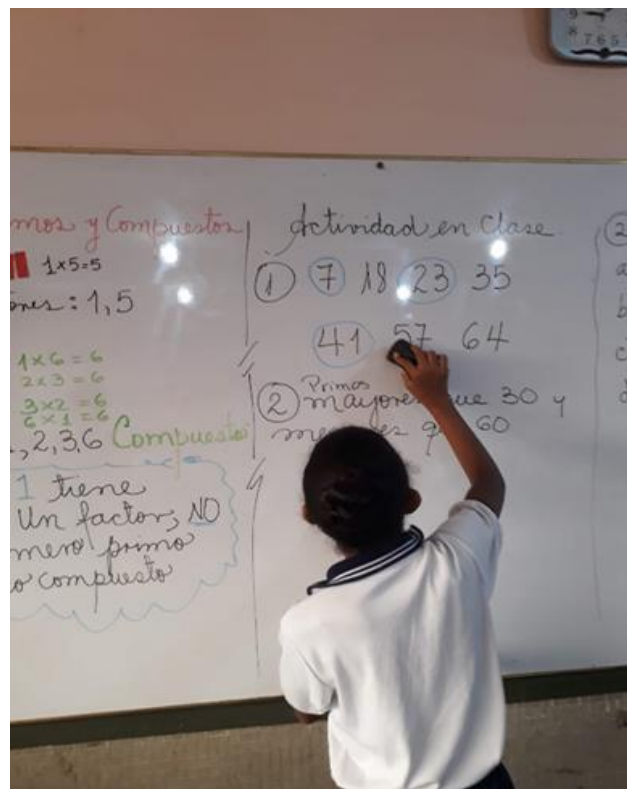 mos y Compuestos
1x5=5
ones: 1,5
1x6=6
2x3=6
3x2=6
6x1=6
, 2, 3, 6 Compuestos
1 tiene
Un factor, NO
mero primo
o compuesto
Actividad en Clase
1 7 18 23 35
41 57 64
2 Primos
mayores que 30 y
60
2
a
b
c
d
9
8 7 6 5